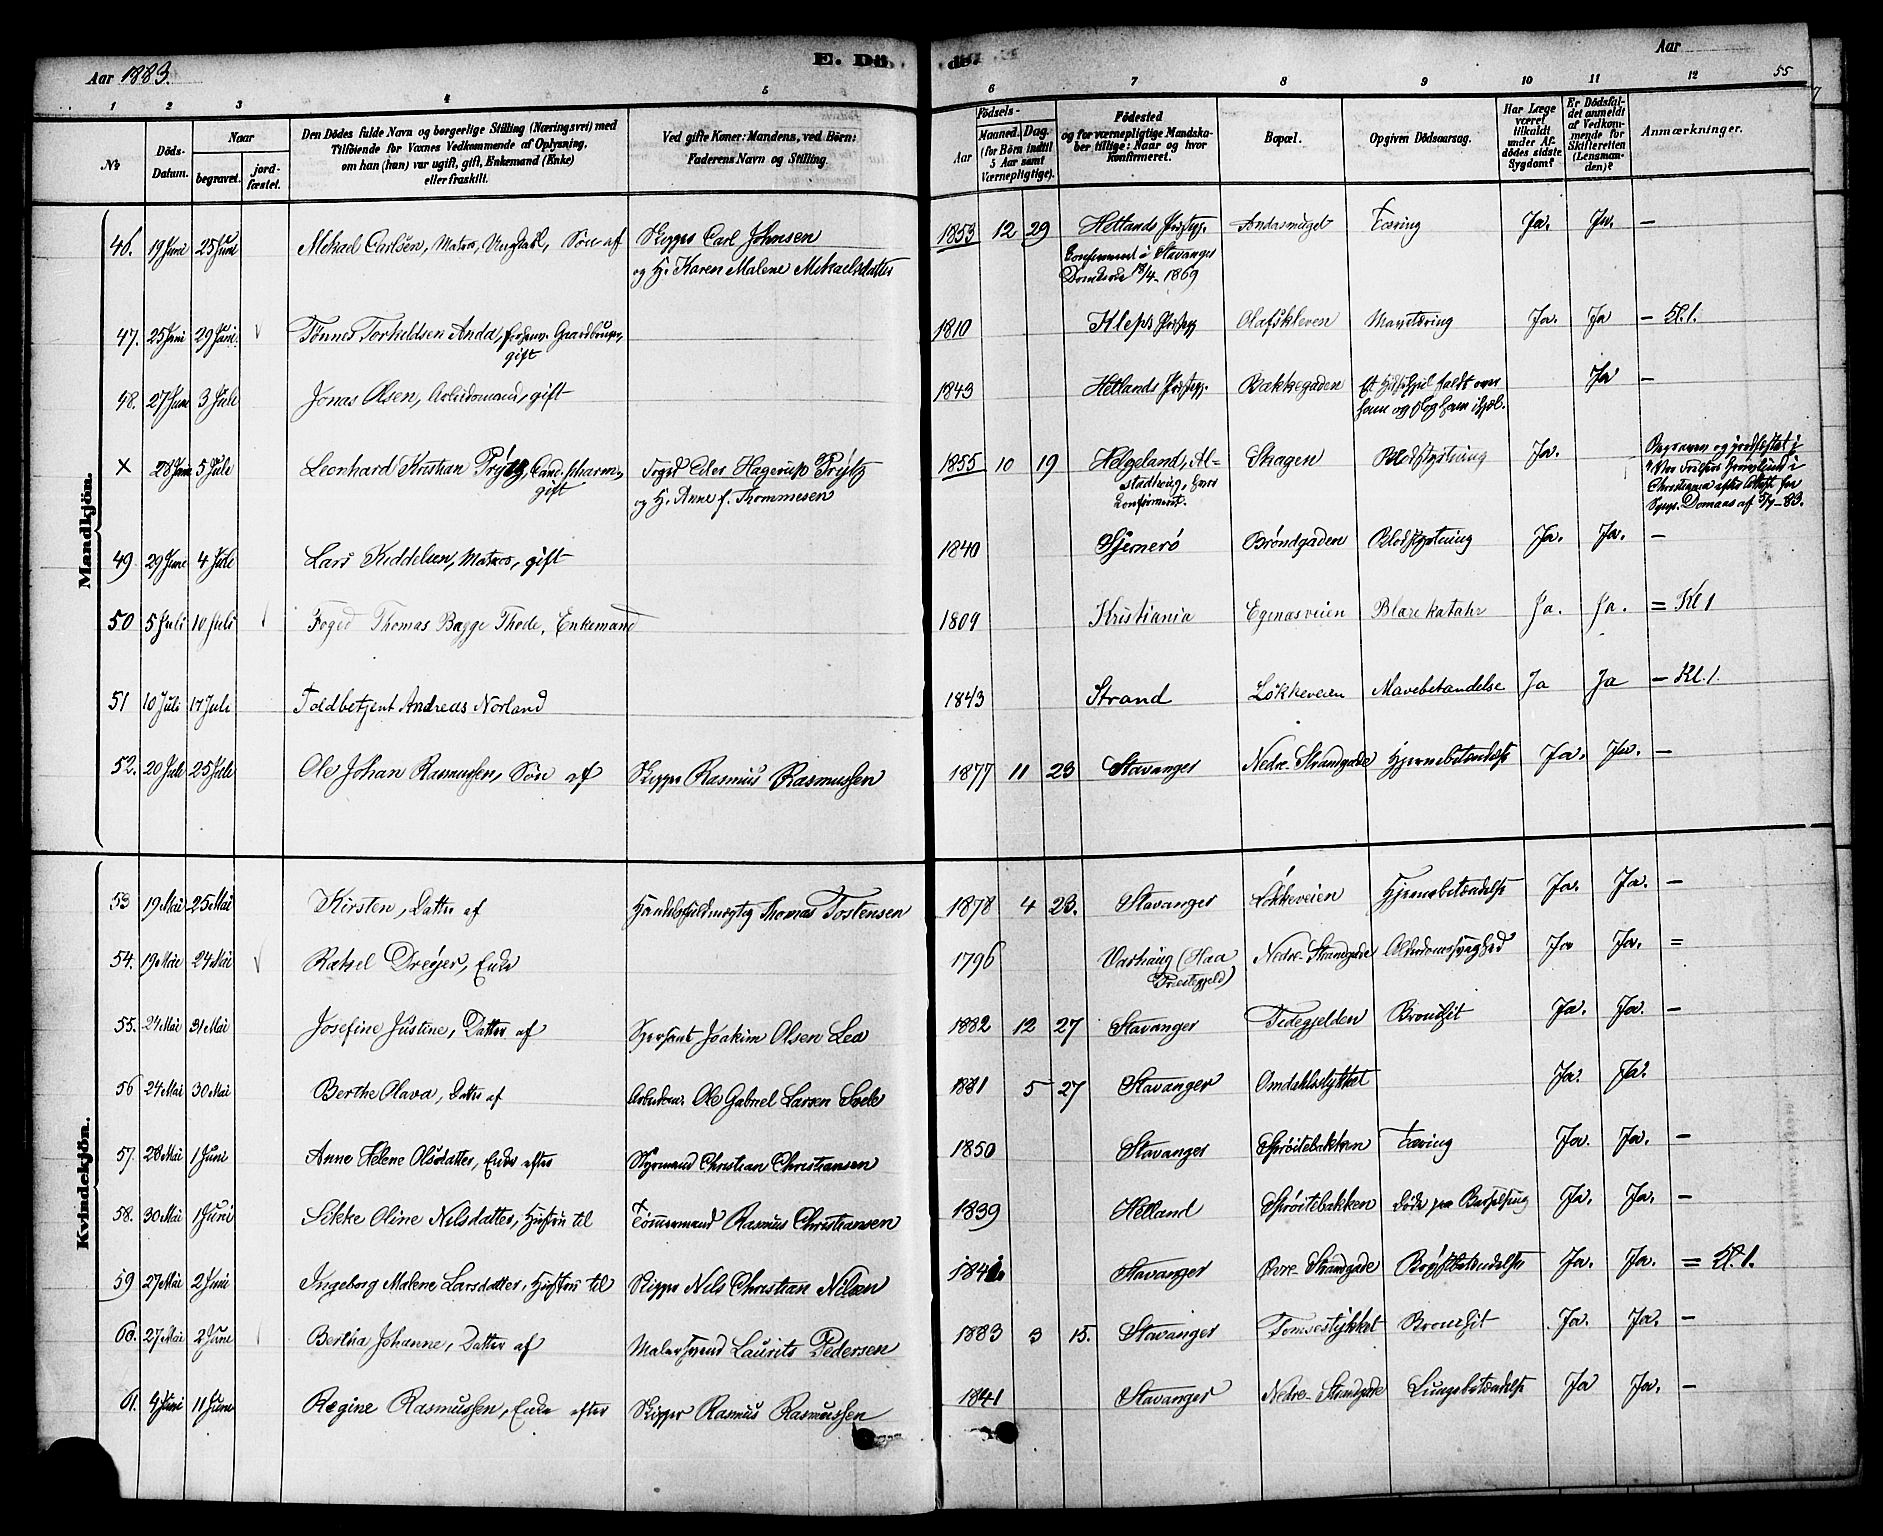 Aar 1883.
E. Döde.
Aar
55
1 2 3 4 5 6 7 8 9 10 11 12
No
Döds-Datum.
Naar
begravet.
jord-fæstet.
Den Dödes fulde Navn og borgerlige Stilling (Næringsvei) med
Tilföiende for Voxnes Vedkommende af Oplysning,
om han (hun) var ugift, gift, Enkemand (Enke)
eller fraskilt.
Ved gifte Koner: Mandens, ved Börn:
Faderens Navn og Stilling.
Födsels-
Aar
Maaned. Dag.
(for Börn indtil
5 Aar samt
Værnepligtige).
Födested
og for værnepligtige Mandska-
ber tillige: Naar og hvor
konfirmeret.
Bopæl.
Opgiven Dödsaarsag.
Har Læge
været
tilkaldt
under Af-
dödes sidste
Sygdom?
Er Dödsfal-
det anmeldt
af Vedkom-
mende for
Skifteretten
(Lensman-
den)?
Anmærkninger.
Mandkjön.
46. 19 Juni 25 Juni Mikael Carlsen, Matros, Ungkarl, Sön af Skipper Carl Johnsen 1853 12 29 Hetlands Præstegj. Tæring Ja. Ja. –
og H. Karen Malene Mikaelsdatter Confirmeret i Stavanger
Domkirke 18/4 1869
47. 25 Juni 29 Juni Tönnes Torkildsen Anda, forhenv. Gaardbruger, 1810 Kleps Præstegj Olafskleven Ja. Ja – Kl. 1.
gift
48. 27 Juni 3 Juli Jonas Olsen, Arbeidsmand, gift 1843 Hetlands Præstegj. Bakkegaden faldt over Ja –
ham og slog ham ihjel.
X 28 Juni 5 Juli Leonhard Kristian Prÿtz, Cand. pharm., Foged Eiler Hagerup Prÿtz 1855 10 19 Helgeland, Al- Skagen Blodstyrtning Ja. Begraven og jordfæstet i
gift og H. Anne f. Thommesen stadhoug, Confirmeret. Vor Frelsers Gravlund i
Christiania efter Attest fra
Domaas af 5/7–83.
49 29 Juni 4 Juli Lars Kiddelsen, Matros, gift 1840 Sjernerö Bröndgaden Blodstyrtning Ja. Ja. –
50 5 Juli 10 Juli Foged Thomas Bagge Thode, Enkemand 1809 Kristiania Egenasveien Blære katahr Ja. Ja. = Kl 1
51 10 Juli 17 Juli Toldbetjent Andreas Norland 1843 Strand Lökkeveien Mavebetandelse Ja Ja – Kl. 1
52. 20 Juli 25 Juli Ole Johan Rasmussen, Sön af Skipper Rasmus Rasmussen 1877 11 23 Stavanger Nedre Strandgade Hjernebetændelse Ja. Ja. –
Kvindekjön.
53 19 Mai 25 Mai Kirsten, Datter af Handelsfuldmægtig Thomas Tostensen 1878 4 23. Stavanger Lökkeveien Hjernebetændelse Ja. Ja. –
54. 19 Mai 24 Mai Rakel Dreÿer, Enke 1796 Varhaug (Haa Nedre Strandgade Alderdomssvaghed Ja Ja. =
Præstegjeld)
55. 24 Mai 31 Mai Josefine Justine, Datter af Joakim Olsen Lea 1882 12 27 Stavanger Tidegjelden Bronchit Ja. Ja. –
56 24 Mai 30 Mai Berthe Olava, Datter af Arbeidsm. Ole Gabriel Larsen 1881 5 27 Stavanger Omdahlstykket Ja. Ja.
57. 28 Mai 1 Juni Anne Helene Olsdatter, Enke efter Styrmand Christian Christiansen 1850 Stavanger Spröitebakken Tæring Ja. Ja. –
58. 30 Mai 1 Juni Sikke Oline Nilsdatter, Hustru til Tömmermand Rasmus Christiansen 1839 Hetland Spröitebakken Döde paa Barselseng Ja. Ja. –
59 27 Mai 2 Juni Ingeborg Malene Larsdatter, Hustru til Skipper Nils Christian Nilsen Stavanger Övre Strandgade Brystbetændelse Ja. Ja. = Kl. 1.
60. 27 Mai 2 Juni Bertha Johanne, Datter af Malersvend Laurits Pedersen 1883 3 15. Stavanger Tomsestykket Bronchit Ja. Ja. –
61. 4 Juni 11 Juni Regine Rasmussen, Enke efter Skipper Rasmus Rasmussen 1841 Stavanger Nedre Strandgade Lungebetændelse Ja Ja. –